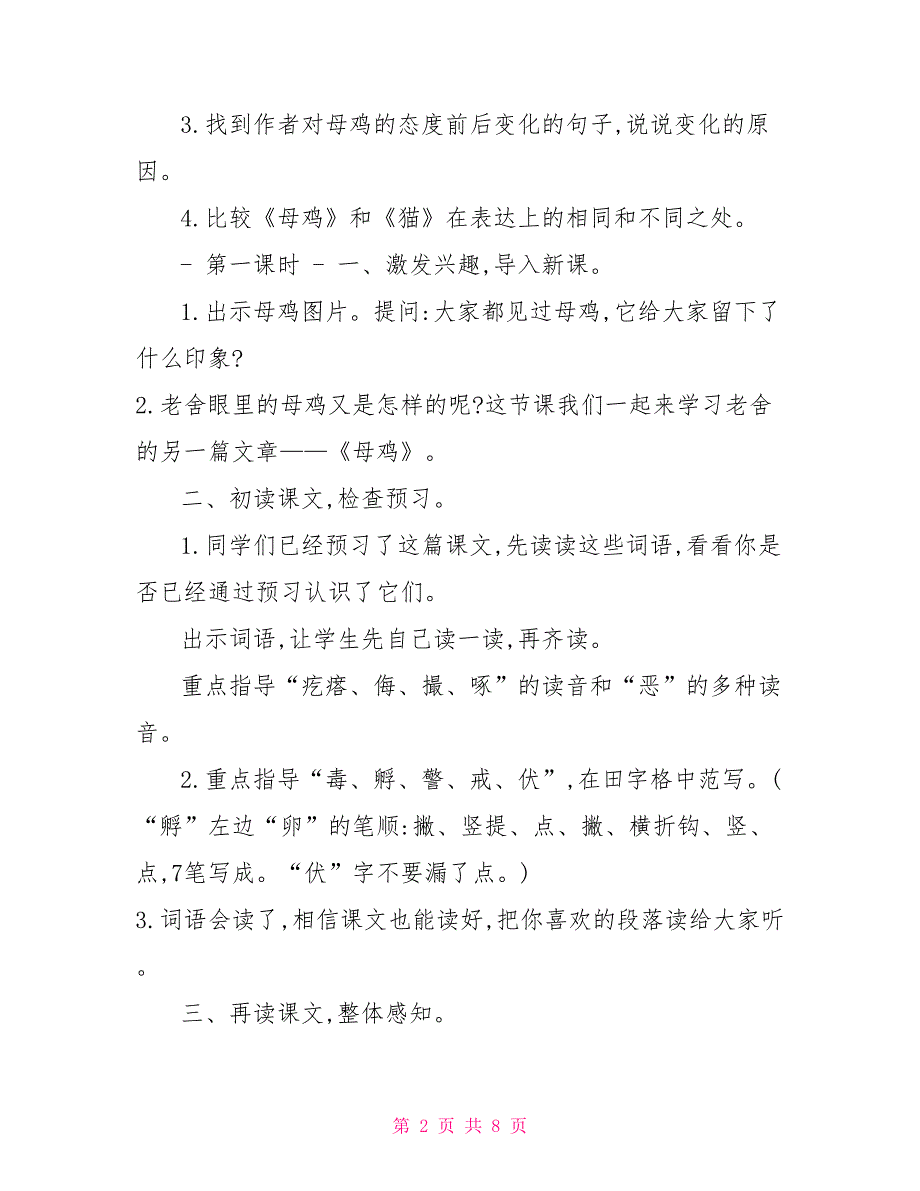 3.找到作者对母鸡的态度前后变化的句子,说说变化的原
因。
4.比较《母鸡》和《猫》在表达上的相同和不同之处。
- 第一课时 - 一、激发兴趣,导入新课。
1.出示母鸡图片。提问:大家都见过母鸡,它给大家留下了
什么印象?
2.老舍眼里的母鸡又是怎样的呢?这节课我们一起来学习老舍
的另一篇文章——《母鸡》。
二、初读课文,检查预习。
1.同学们已经预习了这篇课文,先读读这些词语,看看你是
否已经通过预习认识了它们。
出示词语,让学生先自己读一读,再齐读。
重点指导“疙瘩、侮、撮、啄”的读音和“恶”的多种读
音。
2.重点指导“毒、孵、警、戒、伏”,在田字格中范写。(
“孵”左边“卵”的笔顺:撇、竖提、点、撇、横折钩、竖、
点,7笔写成。“伏”字不要漏了点。)
3.词语会读了,相信课文也能读好,把你喜欢的段落读给大家听
。
三、再读课文,整体感知。
第 2 页 共 8 页